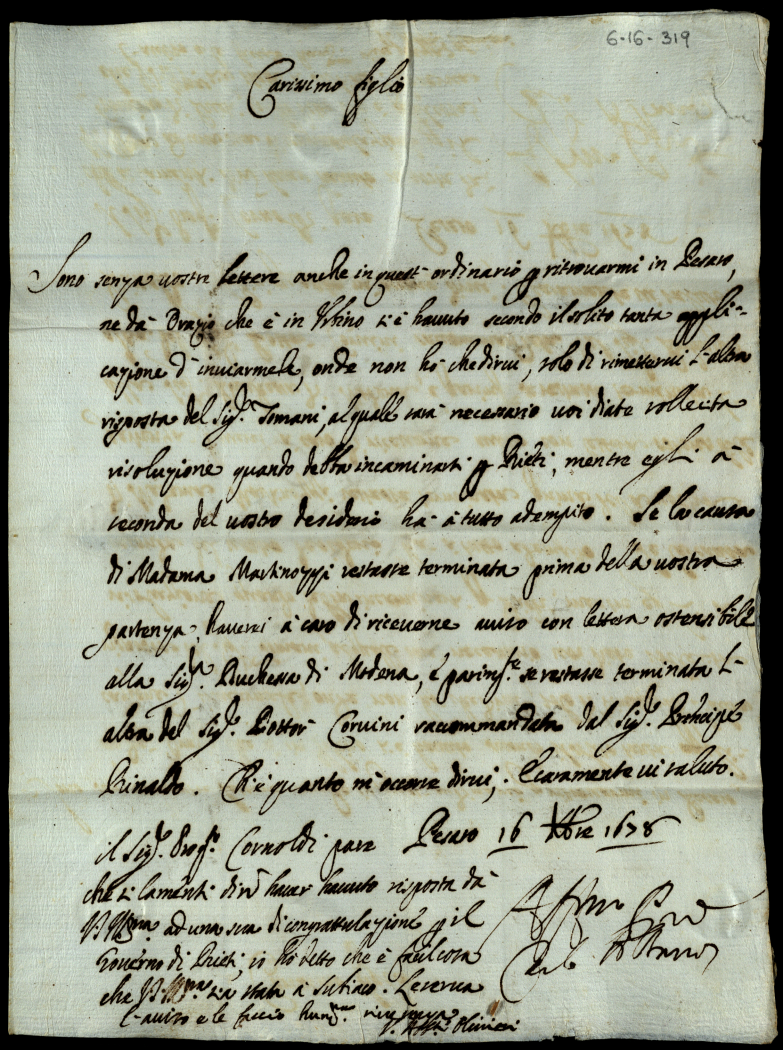 6-16-319
Carissimo figlio
Sono senza vostre lettere anche in quest'ordinario p ritrovarmi in Pesaro,
ne da Orazio che è in Urbino s'è havuto secondo il solito tanta appli-
cazione d'inviarmele, onde non hò che dirvi, solo di rimettervi l'altra
risposta del Sig.r Tomani, al quale sarà necessario voi diate sollecita
risoluzione quando debba incaminarsi p Rieti, mentre egli à
seconda del vostro desiderio ha à tutto adempito. Se la causa
di Madama Martinozzi restasse terminata prima della vostra
partenza, haverei à caro di riceverne aviso con lettera ostensibile
alla Sig.ra Duchessa di Modena, e parim.te se restasse terminata l'
altra del Sig.r Dottor Corvini raccommandata dal Sig.r Principe
Rinaldo. Ch'è quanto m'occorre dirvi, e caramente vi saluto.
Pesaro 16 Xbre 1678
il Sig.r Cornoldi pare
che si lamenti di n haver havuto risposta dà
V.S. Ill.ma ad una sua di congratulazione p il
Governo di Rieti, io hò detto che è facil cosa
che V.S. Ill.ma sia stata à Subiaco. Le serva
l'aviso e le faccio hum.ma riverenza
Aff.mo Pre
Olivieri